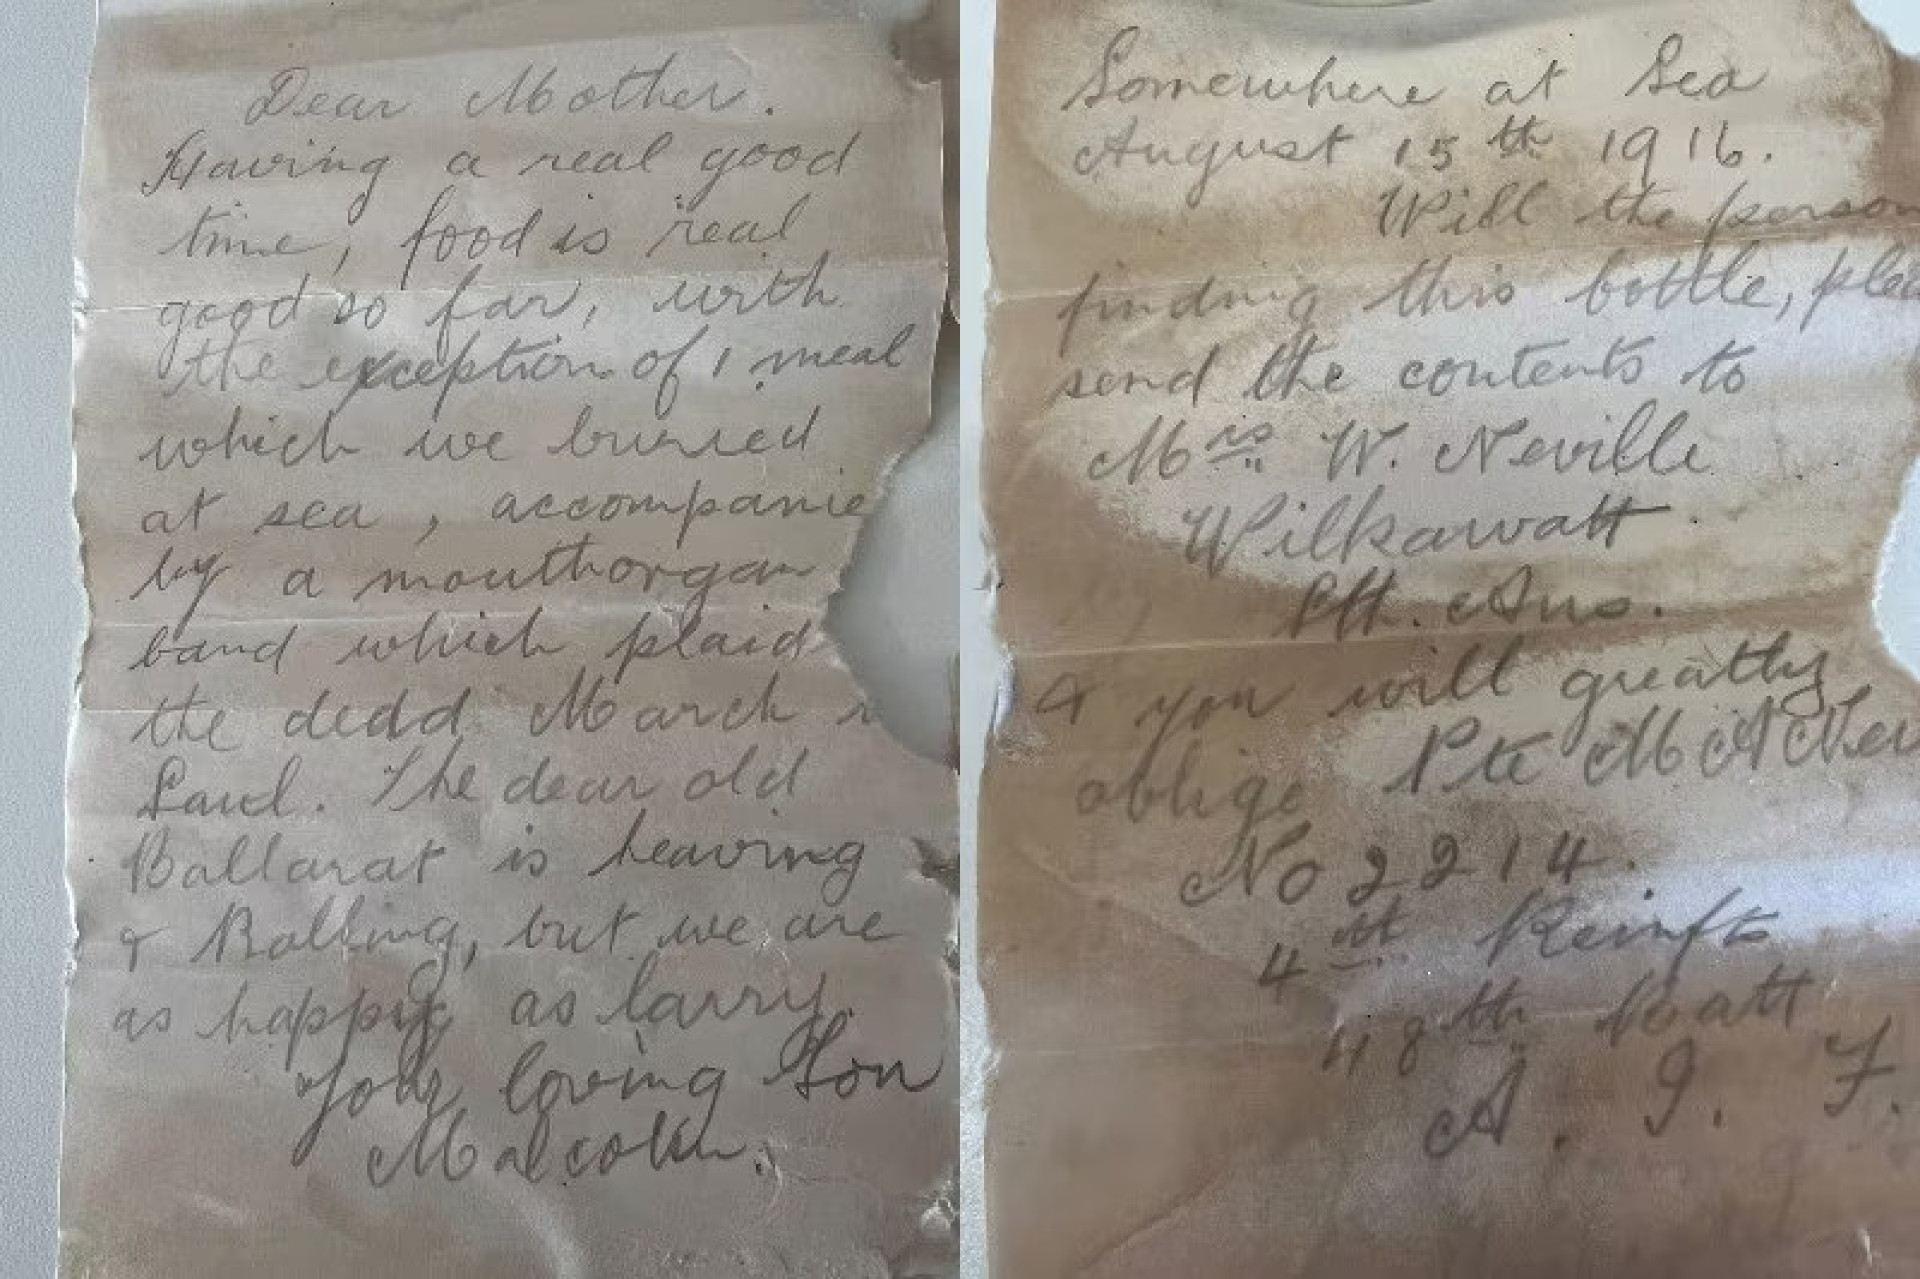 Dear Mother.
Having a real good
time, food is real
good so far, with
the exception of 1 meal
which we burried
at sea, accompanie
by a mouthorgan
band which plaid
the dedd March
Saul. The dear old
Ballarat is heaving
& Rolling, but we are
as happy as larry.
Your loving Son
Malcolm.
Somewhere at Sea
August 15th 1916.
Will the person
finding this bottle, plea
send the contents to
Mrs W. Neville
Wilkawatt
Sth. Aus.
& you will greatly
oblige Pte M A Nev
No 2214.
4th Reinfts
48th Batt
A. I. F.